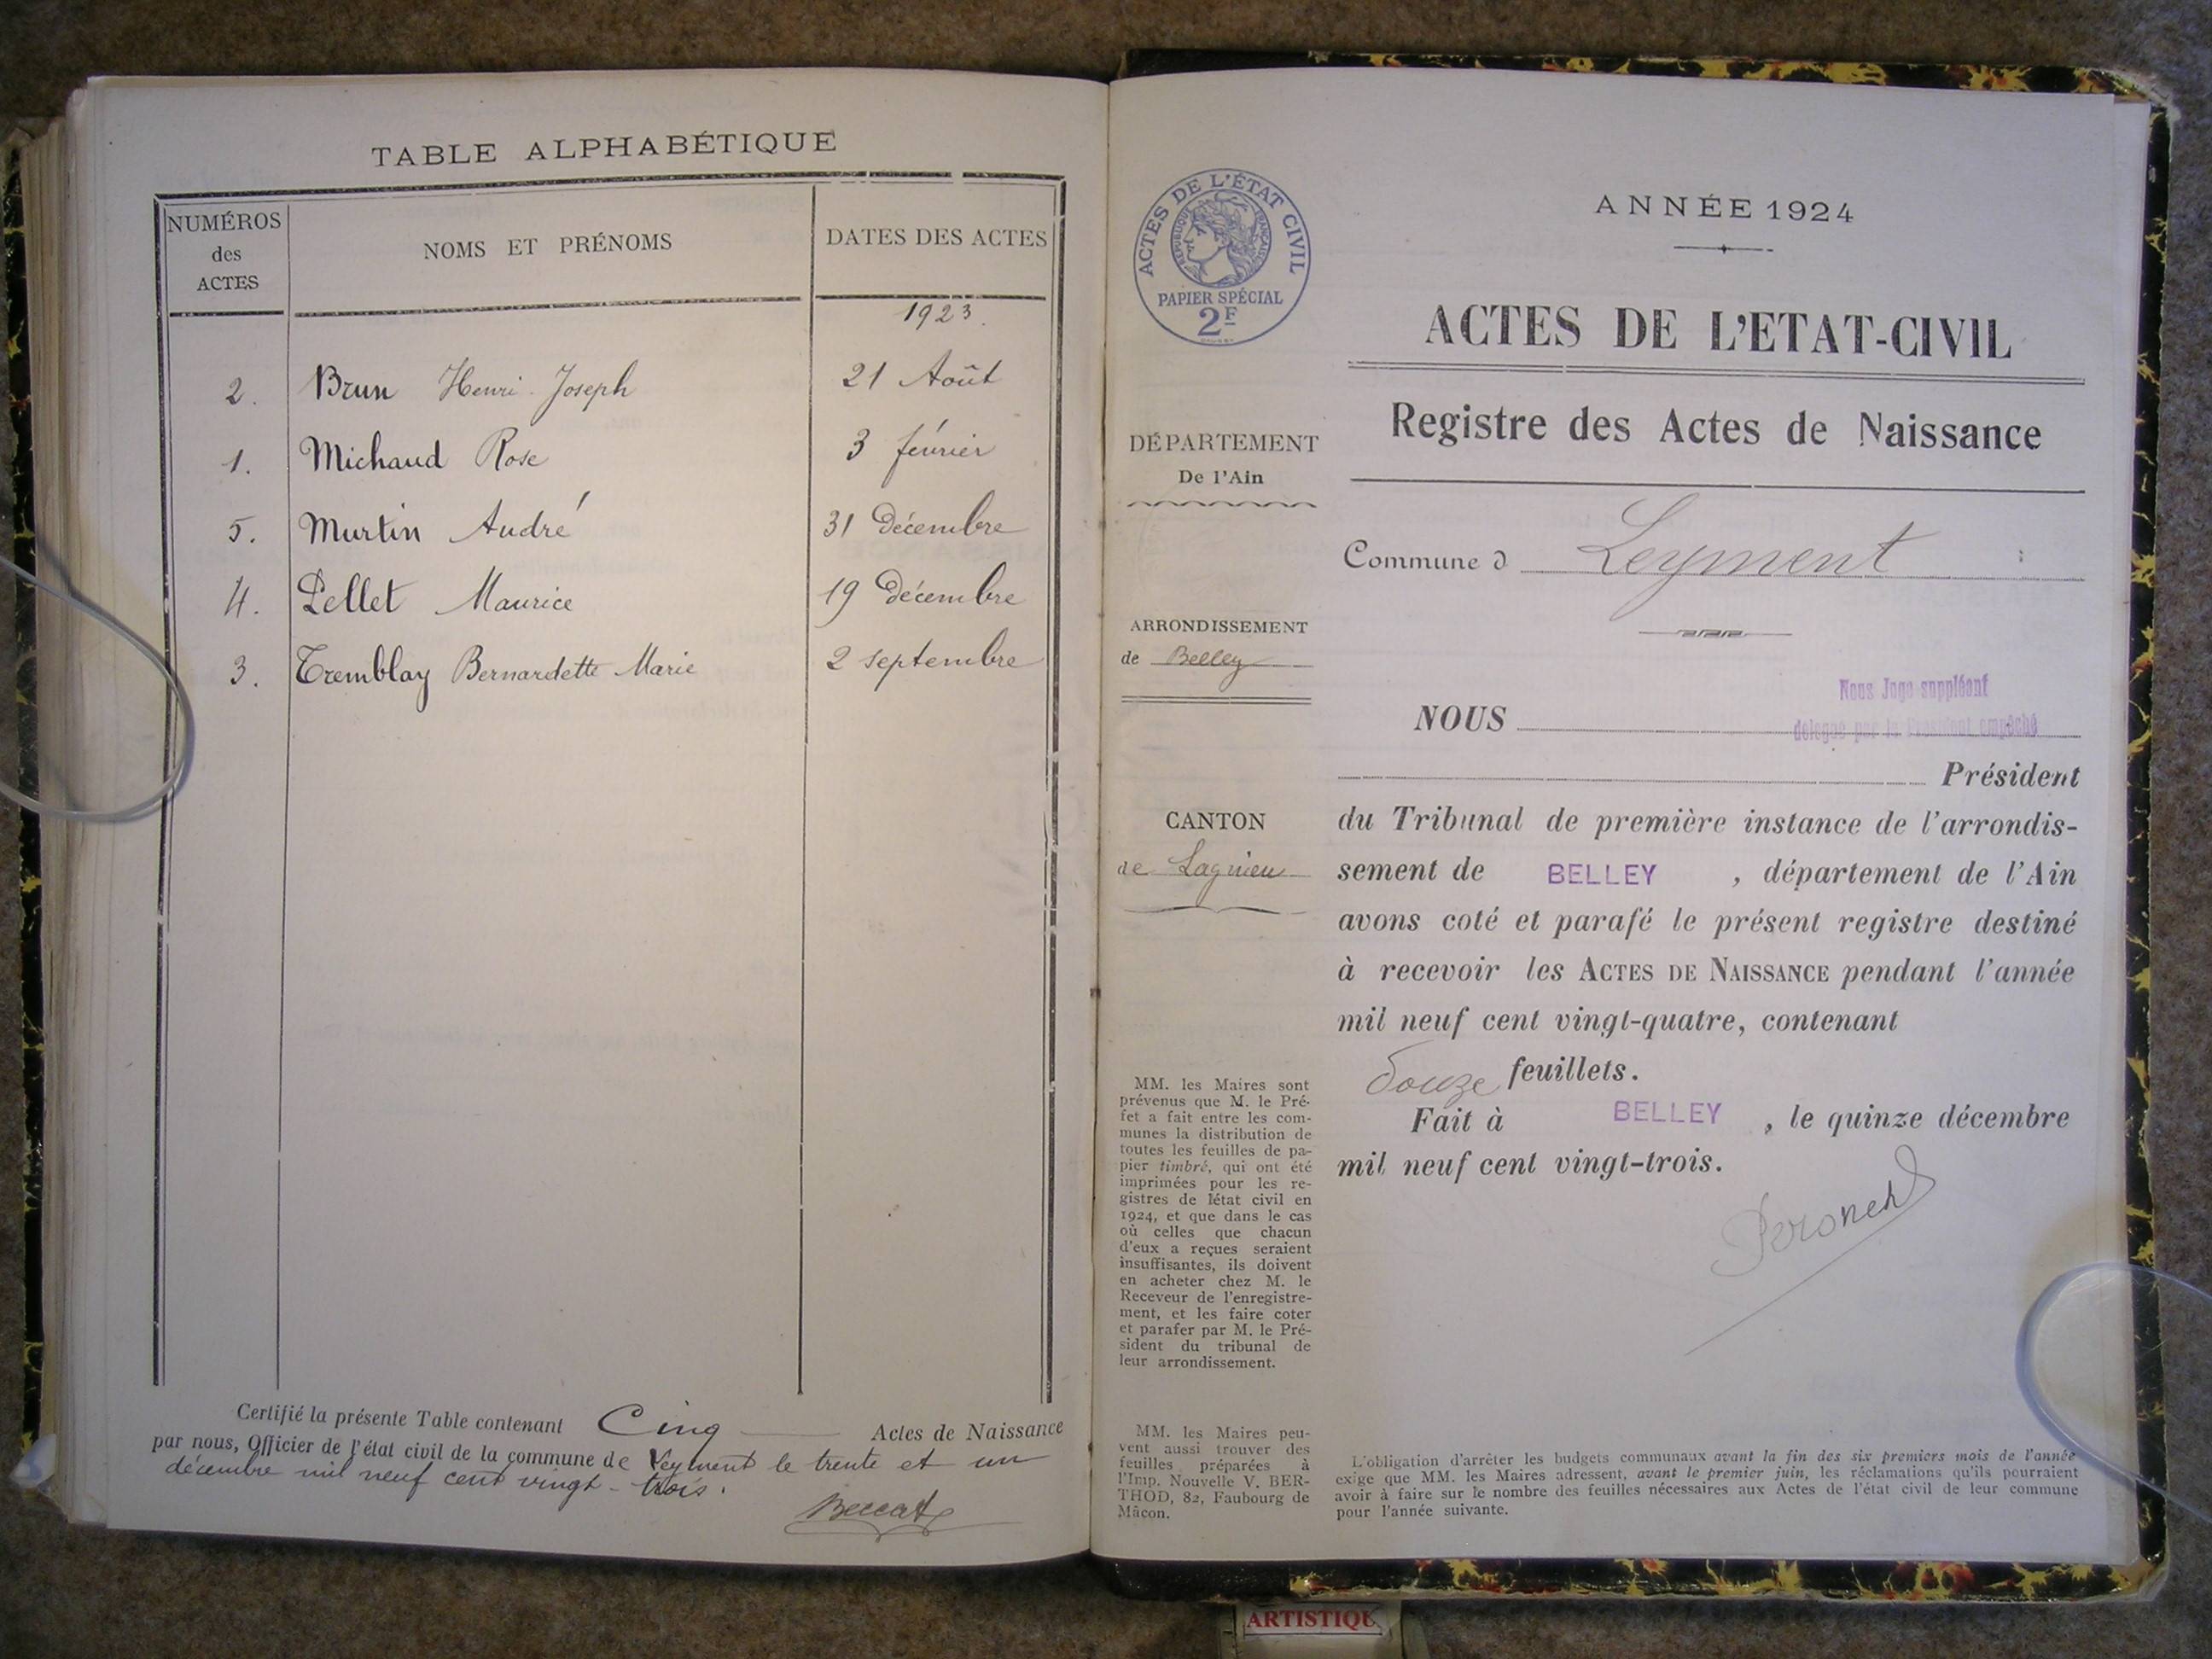 TABLE ALPHABÉTIQUE
NUMÉROS
des
ACTES
NOMS ET PRÉNOMS
DATES DES ACTES
1923.
2. Brun Henri Joseph 21 Août
1. Michaud Rose 3 février
5. Murtin André 31 Décembre
4. Pellet Maurice 19 Décembre
3. Tremblay Bernardette Marie 2 septembre
Certifié la présente Table contenant Cinq Actes de Naissance
par nous, Officier de l'état civil de la commune de Leyment le trente et un
décembre mil neuf cent vingt-trois.
ACTES DE L'ÉTAT CIVIL
RÉPUBLIQUE FRANÇAISE
PAPIER SPÉCIAL
2F
DÉPARTEMENT
De l'Ain
ARRONDISSEMENT
de Belley
CANTON
de Lagnieu
MM. les Maires sont
prévenus que M. le Pré-
fet a fait entre les com-
munes la distribution de
toutes les feuilles de pa-
pier timbré, qui ont été
imprimées pour les re-
gistres de l'état civil en
1924, et que dans le cas
où celles que chacun
d'eux a reçues seraient
insuffisantes, ils doivent
en acheter chez M. le
Receveur de l'enregistre-
ment, et les faire coter
et parafer par M. le Pré-
sident du tribunal de
leur arrondissement.
MM. les Maires peu-
vent aussi trouver des
feuilles préparées à
l'Imp. Nouvelle V. BER-
THOD, 82, Faubourg de
Mâcon.
ANNÉE 1924
ACTES DE L'ETAT-CIVIL
Registre des Actes de Naissance
Commune d Leyment
Nous Juge suppléant
NOUS délégué par le Président empêché
Président
du Tribunal de première instance de l'arrondis-
sement de BELLEY, département de l'Ain
avons coté et parafé le présent registre destiné
à recevoir les ACTES DE NAISSANCE pendant l'année
mil neuf cent vingt-quatre, contenant
Douze feuillets.
Fait à BELLEY, le quinze décembre
mil neuf cent vingt-trois.
L'obligation d'arrêter les budgets communaux avant la fin des six premiers mois de l'année
exige que MM. les Maires adressent, avant le premier juin, les réclamations qu'ils pourraient
avoir à faire sur le nombre des feuilles nécessaires aux Actes de l'état civil de leur commune
pour l'année suivante.
ARTISTIQUE